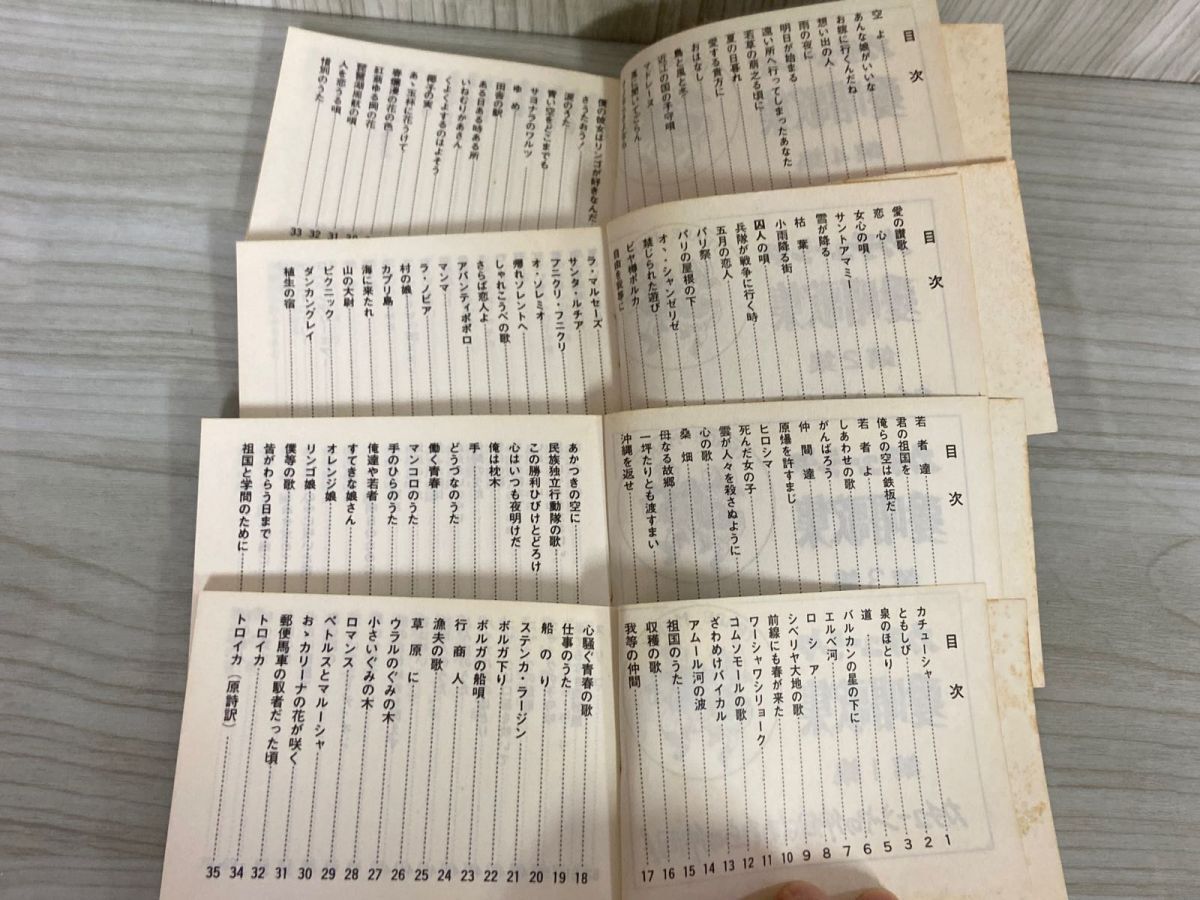 目次
空よ
あんな娘がいいな
お嫁に行くんだね
想い出の人
雨の夜に
明日が始まる
遠い所へ行ってしまったあなた
若草の萌える頃に
夏の日暮れ
愛する貴方に
おはなし
鳥と風と冬
近江の国の子守唄
マドレーヌ
風に聞いてごらん
僕の彼女はリンゴが好きなんだ
さうたおう!
涙のうた
青い空をどこまでも
サヨナラのワルツ
ゆめ
田舎の駅
ある日ある時ある所
いねむりかあさん
くよくよするのはよそう
椰子の実
あゝ玉杯に花うけて
春爛漫の花の色
紅萌ゆる岡の花
琵琶湖周航の唄
人を恋うる唄
惜別のうた
33 32 31 30
目次
愛の讃歌
恋心
女心の唄
サントアマミー
雪が降る
枯葉
小雨降る街
囚人の唄
兵隊が戦争に行く時
五月の恋人
パリ祭
パリの屋根の下
オゝ、シャンゼリゼ
禁じられた遊び
ビヤ樽ポルカ
自由を我等に
ラ・マルセーズ
サンタ・ルチア
フニクリ・フニクリ
オ・ソレミオ
帰れソレントへ
しゃれこうべの歌
さらば恋人よ
アバンティポポロ
マンマ
ラ・ノビア
村の娘
カプリ島
海に来たれ
山の大尉
ピクニック
ダンカングレイ
植生の宿
目次
若者達
君の祖国を
俺らの空は鉄板だ
若者よ
しあわせの歌
がんばろう
仲間達
原爆を許すまじ
ヒロシマ
死んだ女の子
雲が人々を殺さぬように
心の歌
桑畑
母なる故郷
一坪たりとも渡すまい
沖縄を返せ
あかつきの空に
民族独立行動隊の歌
この勝利ひびけとどろけ
心はいつも夜明けだ
俺は枕木
手
どうづなのうた
働く青春
マンコロのうた
手のひらのうた
俺達や若者
すてきな娘さん
オレンジ娘
リンゴ娘
僕等の歌
皆がわらう日まで
祖国と学問のために
目次
カチューシャ 1
ともしび 2
泉のほとり 3
道 5
バルカンの星の下に 6
エルベ河 7
ロシア 8
シベリヤ大地の歌 9
前線にも春が来た 10
ワーシャワシリョーク 11
コムソモールの歌 12
ざわめけバイカル 13
アムール河の波 14
祖国のうた 15
収穫の歌 16
我等の仲間 17
心騒ぐ青春の歌 18
仕事のうた 19
船のり 20
ステンカ・ラージン 21
ボルガ下り 22
ボルガの船唄 23
行商人 24
漁夫の歌 25
草原に 26
ウラルのぐみの木
小さいぐみの木 27
ロマンス 28
ベトルスとマルーシャ 29
おゝカリーナの花が咲く 30
郵便馬車の馭者だった頃 31
トロイカ 32
トロイカ(原詩訳) 34
35